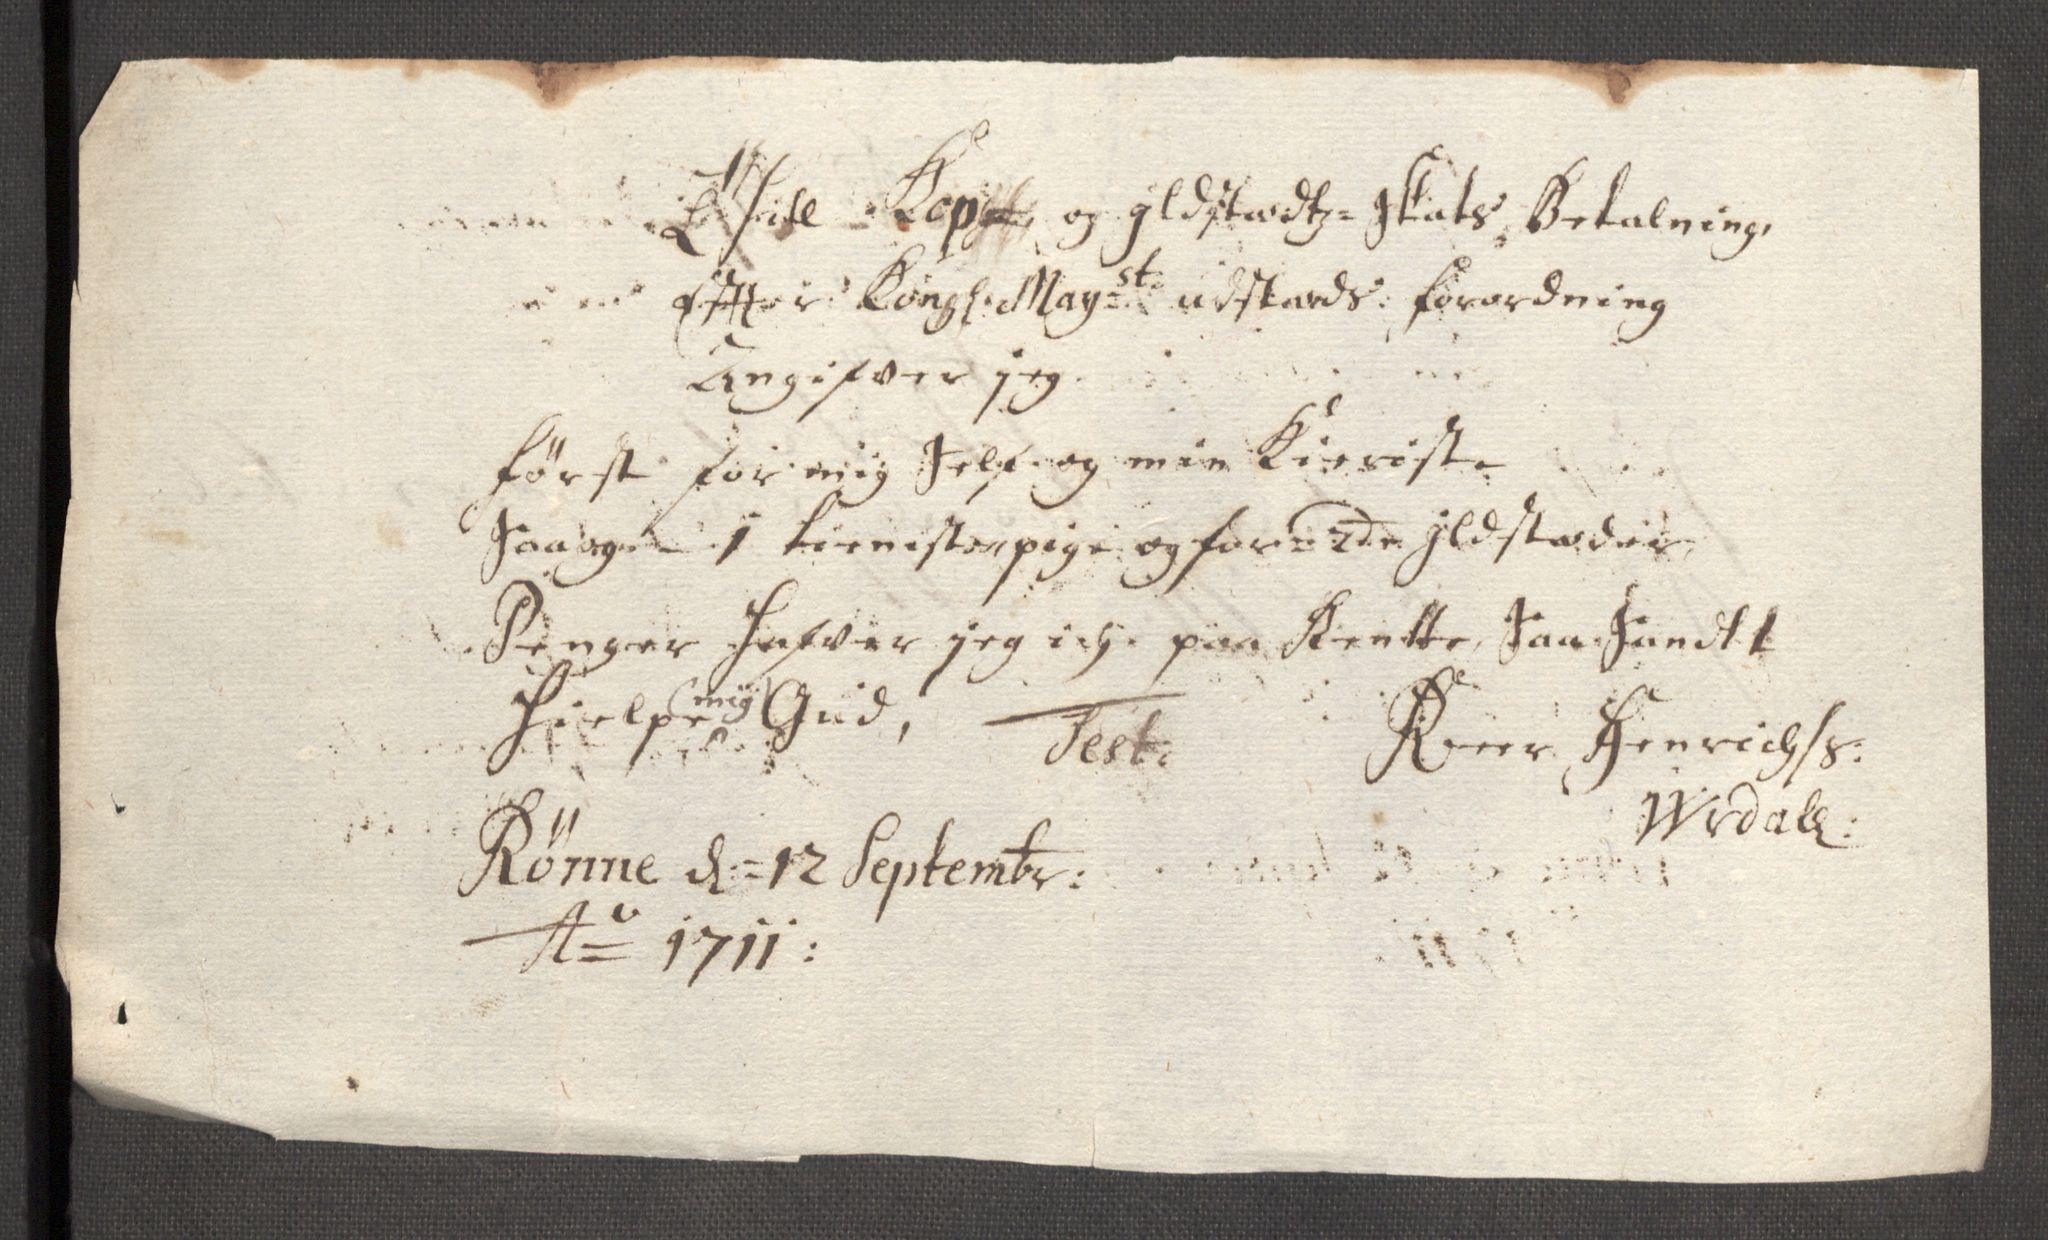 till Kop og Jldstædtz= Skats Betalning,
Effter Kongl: May=st: udstæds forordning
Angifver jeg
først for mig Self og min Kieriste
Saa og 1 tienistepige og for 2de Jldstæder,
Penger Hafver jeg ich paa Rentte, Saa Sandt
Hielpe mig Gud,
Test:
Henrichss:
Wrdall:
Rönne d:=12 Septembr:
Ao 1711: